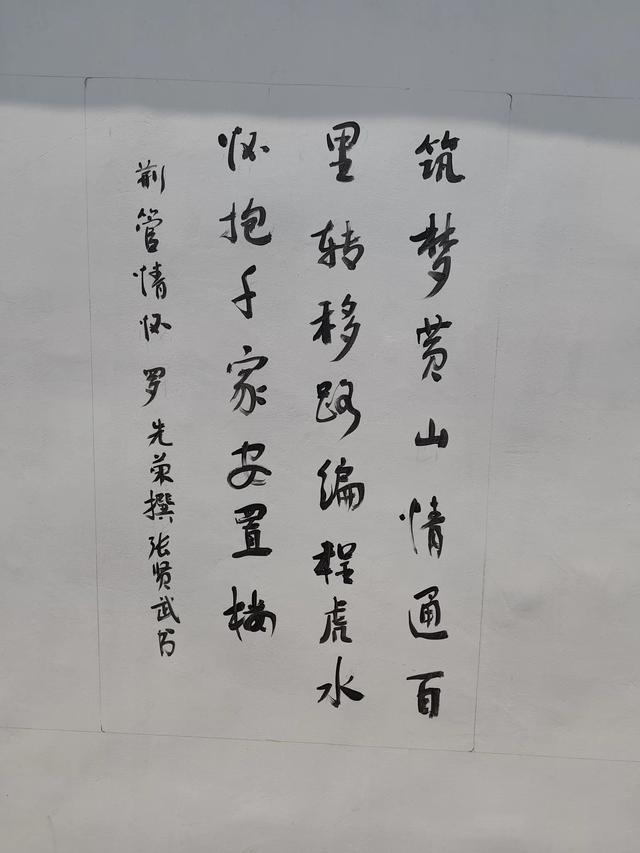 筑梦黄山情通百
里转移路编程虎水
怀抱千家安置楼
荆管情怀 罗先荣撰张贤武书